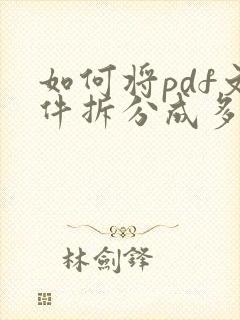 如何将pdf文
件拆分成多
林劍鋒